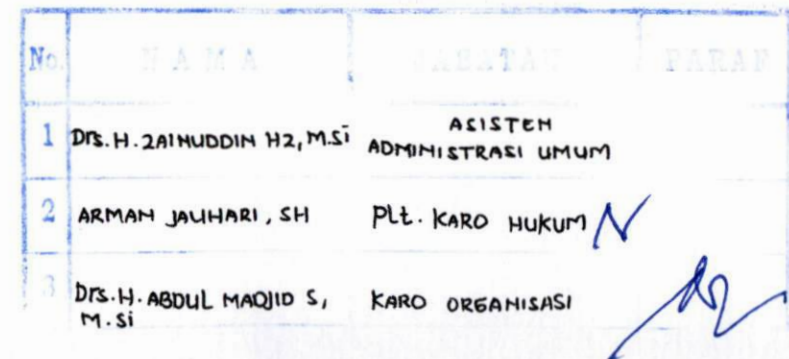 No. N A M A JABATAN PARAF
1 Drs. H. ZAINUDDIN HZ, M.Si ASISTEN
ADMINISTRASI UMUM
2 ARMAN JAUHARI, SH Plt. KARO HUKUM
3 Drs. H. ABDUL MADJID S, KARO ORGANISASI
M.Si